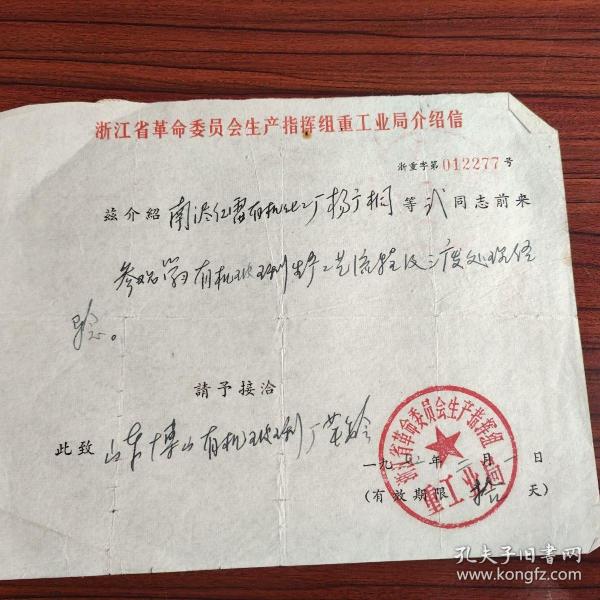 浙江省革命委员会生产指挥组重工业局介绍信
浙重字第012277号
兹介紹南浔红雷有机化工厂杨广桐等弍同志前来
参观学习有机玻璃生产工艺流程及三废处理经
验。
請予接洽
此致山东博山有机玻璃厂革
浙江省革命委员会生产指挥组
重工业局
一九七二年二月一日
(有效期限拾天)
孔夫子旧书网
www.kongfz.com